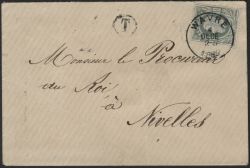 T
WAVRE
Monsieur le Procureur
du Roi
à
Nivelles